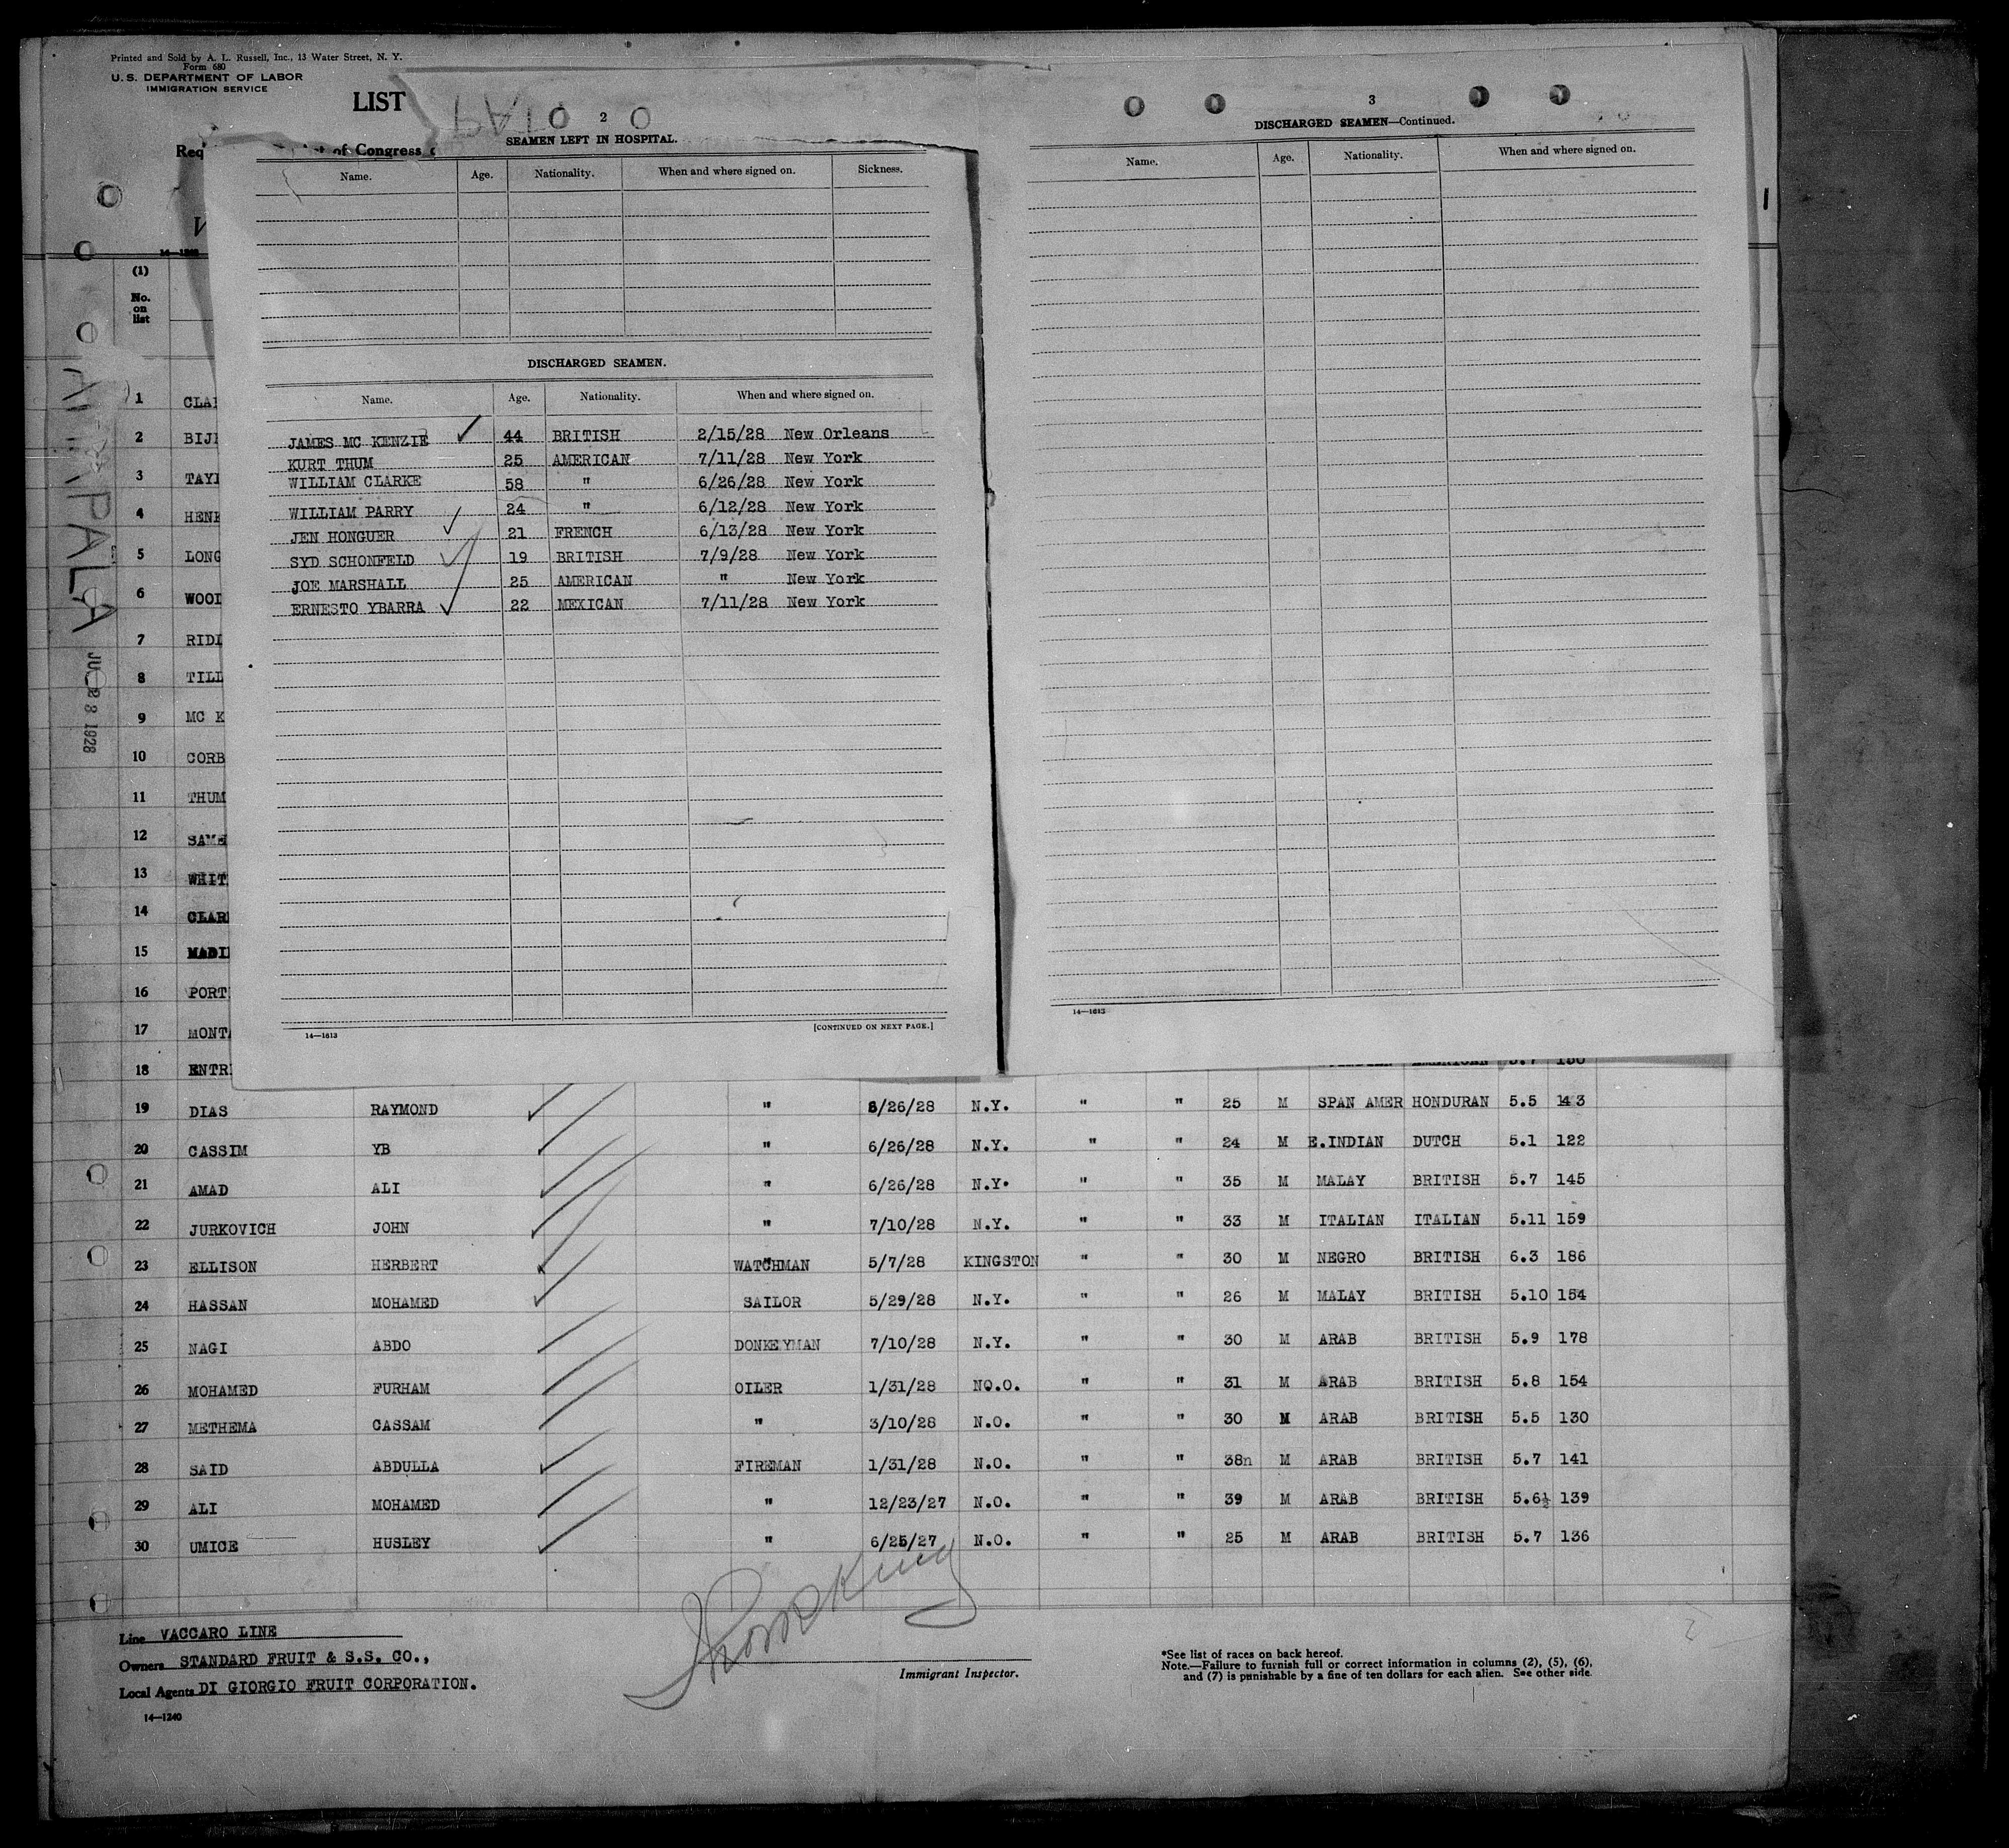 Printed and Sold by A. L. Russell, Inc., 13 Water Street, N. Y.
Form 680
U. S. DEPARTMENT OF LABOR
IMMIGRATION SERVICE
LIST
of Congress
(1)
No.
on
list
AMAPALA
1928
2
SEAMEN LEFT IN HOSPITAL.
Name. Age. Nationality. When and where signed on. Sickness.
DISCHARGED SEAMEN.
Name. Age. Nationality. When and where signed on.
JAMES MC KENZIE 44 BRITISH 2/15/28 New Orleans
KURT THUM 25 AMERICAN 7/11/28 New York
WILLIAM CLARKE 58 " 6/26/28 New York
WILLIAM PARRY 24 " 6/12/28 New York
JEN HONGUER 21 FRENCH 6/13/28 New York
SYD SCHONFELD 19 BRITISH 7/9/28 New York
JOE MARSHALL 25 AMERICAN " New York
ERNESTO YBARRA 22 MEXICAN 7/11/28 New York
14—1613 [CONTINUED ON NEXT PAGE.]
3
DISCHARGED SEAMEN—Continued.
Name. Age. Nationality. When and where signed on.
14—1613
1
2 BIJ
3 TAY
4 HEN
5 LONG
6 WOO
7 RID
8 TILL
9 MC K
10 CORB
11 THUM
12 SAM
13 WHIT
14 CLAR
15 MADI
16 PORT
17 MONT
18 ENTR
19 DIAS RAYMOND " 6/26/28 N.Y. " " 25 M SPAN AMER HONDURAN 5.5 143
20 CASSIM YB " 6/26/28 N.Y. " " 24 M E.INDIAN DUTCH 5.1 122
21 AMAD ALI " 6/26/28 N.Y. " " 35 M MALAY BRITISH 5.7 145
22 JURKOVICH JOHN " 7/10/28 N.Y. " " 33 M ITALIAN ITALIAN 5.11 159
23 ELLISON HERBERT WATCHMAN 5/7/28 KINGSTON " " 30 M NEGRO BRITISH 6.3 186
24 HASSAN MOHAMED SAILOR 5/29/28 N.Y. " " 26 M MALAY BRITISH 5.10 154
25 NAGI ABDO DONKEYMAN 7/10/28 N.Y. " " 30 M ARAB BRITISH 5.9 178
26 MOHAMED FURHAM OILER 1/31/28 NO.O. " " 31 M ARAB BRITISH 5.8 154
27 METHEMA CASSAM " 3/10/28 N.O. " " 30 M ARAB BRITISH 5.5 130
28 SAID ABDULLA FIREMAN 1/31/28 N.O. " " 38n M ARAB BRITISH 5.7 141
29 ALI MOHAMED " 12/23/27 N.O. " " 39 M ARAB BRITISH 5.6½ 139
30 UMICE HUSLEY " 6/25/27 N.O. " " 25 M ARAB BRITISH 5.7 136
Line VACCARO LINE
Owners STANDARD FRUIT & S.S. CO.,
Local Agents DI GIORGIO FRUIT CORPORATION.
14—1240
Immigrant Inspector.
*See list of races on back hereof.
Note.—Failure to furnish full or correct information in columns (2), (5), (6),
and (7) is punishable by a fine of ten dollars for each alien. See other side.